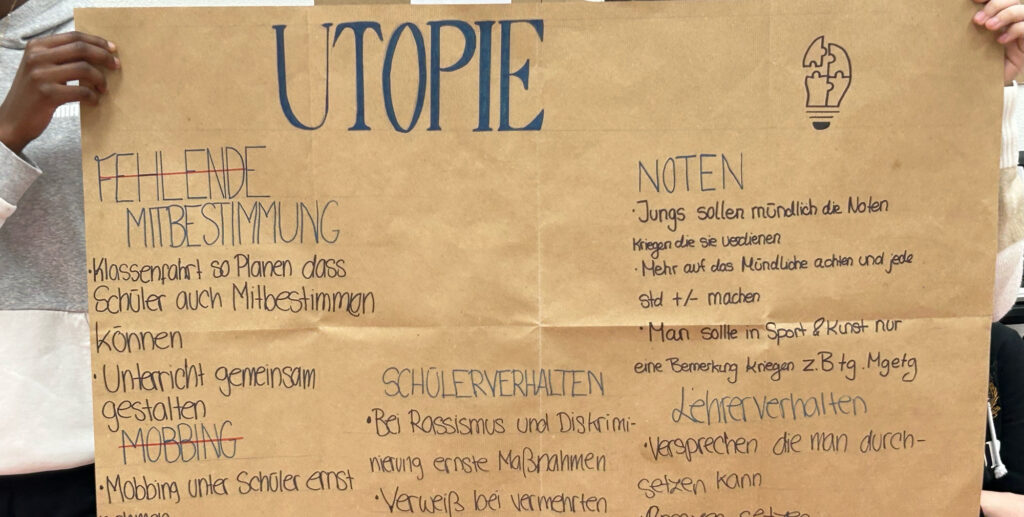 UTOPIE
FEHLENDE
MITBESTIMMUNG
·Klassenfahrt so Planen dass
Schüler auch Mitbestimman
können
· Unterricht gemeinsam
gestalten
MOBBING
·Mobbing unter Schüler ernst
SCHÜLERVERHALTEN
·Bei Rassismus und Diskrimi-
nierung ernste Maßnahmen
·Verweiß bei vermehrten
NOTEN
·Jungs sollen mündlich die Noten
kriegen die sie verdienen
·Mehr auf das Mündliche achten und jede
std +/- machen
·Man sollte in Sport & Kunst nur
eine Bemerkung kriegen z.B tg. Mgetg
Lehrerverhalten
·Versprechen die man durch-
setzen kann